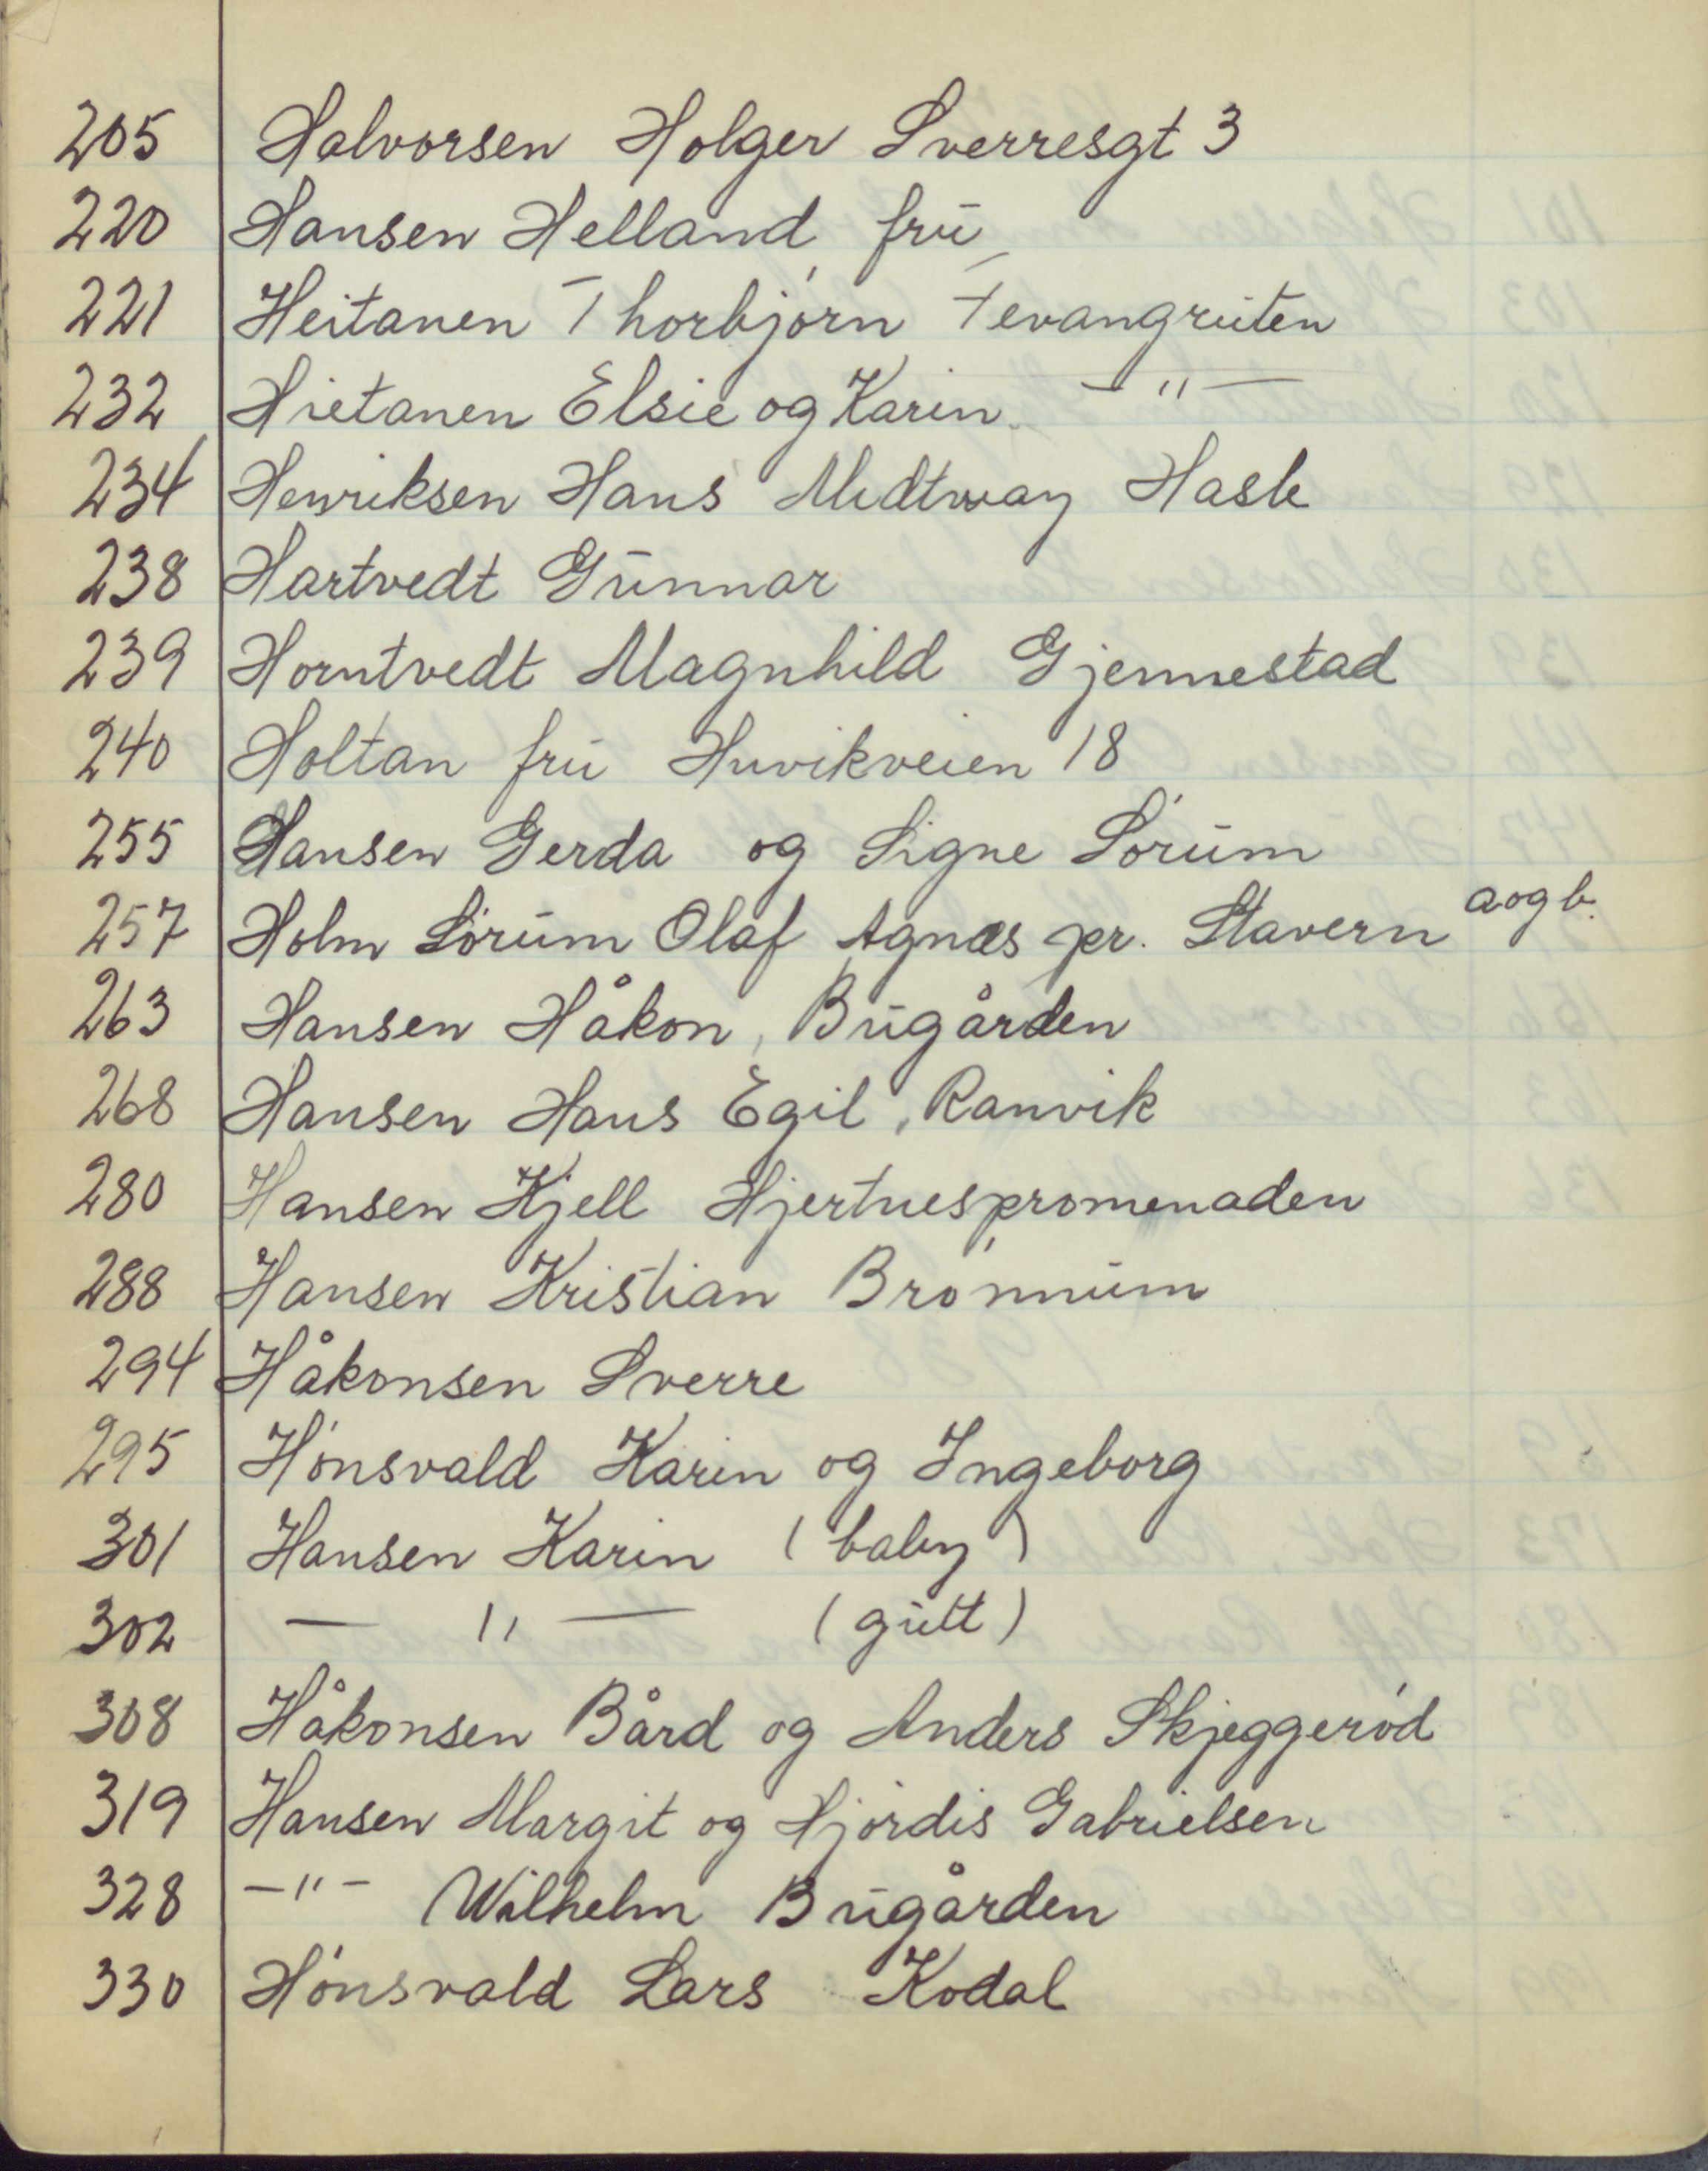 205 Halvorsen Holger Sverresgt 3
220 Hansen Helland, fru
221 Heitanen Thorbjørn Fevangruten
232 Hietanen Elsie og Karin — " —
234 Henriksen Hans Midtway Hasle
238 Hartvedt Gunnar
239 Horntvedt Magnhild Gjennestad
240 Holtan fru Huvikveien 18
255 Hansen Gerda og Signe Sørum
257 Holm Sørum Olaf Agnæs pr. Stavern a og b.
263 Hansen Håkon, Bugården
268 Hansen Hans Egil, Ranvik
280 Hansen Kjell Hjertnespromenaden
288 Hansen Kristian Brønnum
294 Håkonsen Sverre
295 Hønsvald Karin og Ingeborg
301 Hansen Karin (baby)
302 — " — (gutt)
308 Håkonsen Bård og Anders Skjeggerød
319 Hansen Margit og Hjørdis Gabrielsen
328 — " — Wilhelm Bugården
330 Hønsvald Lars Kodal